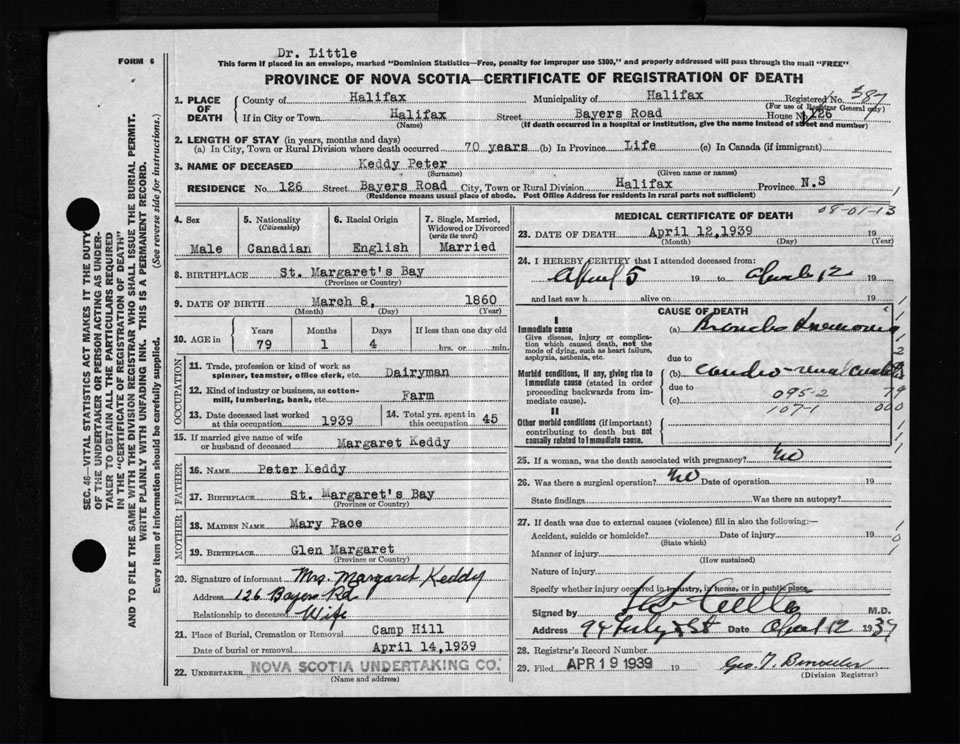 Dr. Little
FORM 6
This form if placed in an envelope, marked "Dominion Statistics—Free, penalty for improper use $300," and properly addressed will pass through the mail "FREE"
PROVINCE OF NOVA SCOTIA—CERTIFICATE OF REGISTRATION OF DEATH
1. PLACE OF DEATH
County of Halifax Municipality of Halifax Registered No. 387
(For use of Registrar General only)
If in City or Town Halifax Street Bayers Road House No. 126
(Name) (If death occurred in a hospital or institution, give the name instead of street and number)
2. LENGTH OF STAY (in years, months and days)
(a) In City, Town or Rural Division where death occurred 70 years (b) In Province Life (c) In Canada (if immigrant)
3. NAME OF DECEASED Keddy Peter
(Surname) (Given name or names)
RESIDENCE No. 126 Street Bayers Road City, Town or Rural Division Halifax Province N.S
(Residence means usual place of abode. Post Office Address for residents in rural parts not sufficient)
4. Sex
Male
5. Nationality
(Citizenship)
Canadian
6. Racial Origin
English
7. Single, Married, Widowed or Divorced
(write the word)
Married
8. BIRTHPLACE St. Margaret's Bay
(Province or Country)
9. DATE OF BIRTH March 8, 1860
(Month) (Day) (Year)
10. AGE in
Years Months Days If less than one day old
79 1 4 hrs. or min.
OCCUPATION
11. Trade, profession or kind of work as spinner, teamster, office clerk, etc. Dairyman
12. Kind of industry or business, as cotton-mill, lumbering, bank, etc. Farm
13. Date deceased last worked at this occupation 1939
14. Total yrs. spent in this occupation 45
15. If married give name of wife or husband of deceased Margaret Keddy
FATHER
16. NAME Peter Keddy
17. BIRTHPLACE St. Margaret's Bay
(Province or Country)
MOTHER
18. MAIDEN NAME Mary Pace
19. BIRTHPLACE Glen Margaret
(Province or Country)
20. Signature of informant Mrs. Margaret Keddy
Address 126 Bayers Rd
Relationship to deceased Wife
21. Place of Burial, Cremation or Removal Camp Hill
Date of burial or removal April 14,1939
22. UNDERTAKER NOVA SCOTIA UNDERTAKING CO.
(Name and address)
MEDICAL CERTIFICATE OF DEATH
08-01-13
23. DATE OF DEATH April 12,1939 19
(Month) (Day) (Year)
24. I HEREBY CERTIFY that I attended deceased from:
April 5 19 to April 12 19
and last saw h alive on 19
CAUSE OF DEATH
I
Immediate cause
Give disease, injury or complication which caused death, not the mode of dying, such as heart failure, asphyxia, asthenia, etc.
(a) Broncho Pneumonia
due to
Morbid conditions, if any, giving rise to immediate cause (stated in order proceeding backwards from immediate cause).
(b) cardio-renal
due to 095-2 79
(c) 107-1 000
II
Other morbid conditions (if important) contributing to death but not causally related to immediate cause.
25. If a woman, was the death associated with pregnancy? No
26. Was there a surgical operation? No Date of operation 19
State findings Was there an autopsy?
27. If death was due to external causes (violence) fill in also the following:—
Accident, suicide or homicide? Date of injury 19
(State which)
Manner of injury
(How sustained)
Nature of injury
Specify whether injury occurred in industry, in home, or in public place
Signed by M.D.
Address 94 St Date April 12 1939
28. Registrar's Record Number
29. Filed APR 19 1939 19 Geo. T.
(Division Registrar)
SEC. 46—VITAL STATISTICS ACT MAKES IT THE DUTY
OF THE UNDERTAKER OR PERSON ACTING AS UNDER-
TAKER TO OBTAIN ALL THE PARTICULARS REQUIRED
IN THE "CERTIFICATE OF REGISTRATION OF DEATH"
AND TO FILE THE SAME WITH THE DIVISION REGISTRAR WHO SHALL ISSUE THE BURIAL PERMIT.
WRITE PLAINLY WITH UNFADING INK. THIS IS A PERMANENT RECORD.
Every item of information should be carefully supplied. (See reverse side for instructions.)